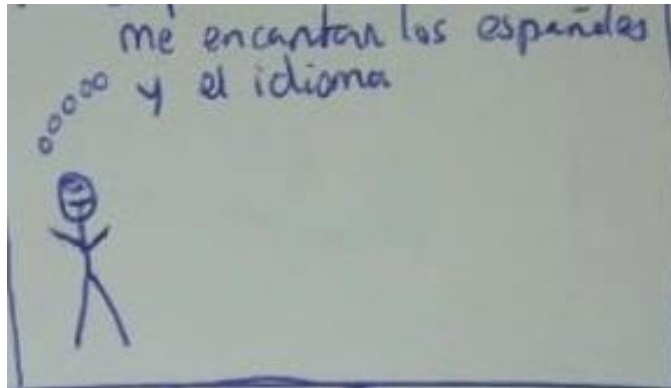 me encantan los españoles
y el idioma